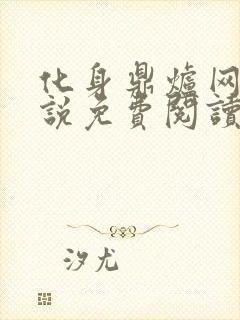 化身鼎爐网
説免費閱讀
汐尤